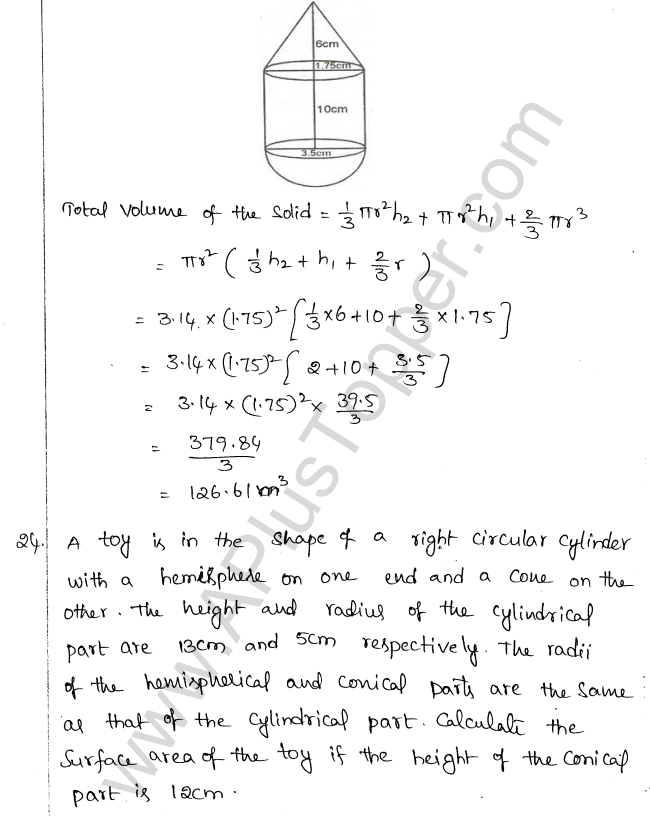 6cm
1.75cm
10cm
3.5cm
Total Volume of the Solid = 1/3 πr²h₂ + πr²h₁ + 2/3 πr³
= πr² ( 1/3 h₂ + h₁ + 2/3 r )
= 3.14 × (1.75)² [ 1/3 × 6 + 10 + 2/3 × 1.75 ]
= 3.14 × (1.75)² [ 2 + 10 + 3.5/3 ]
= 3.14 × (1.75)² × 39.5/3
= 379.84/3
= 126.61 m³
24. A toy is in the shape of a right circular cylinder
with a hemisphere on one end and a cone on the
other. The height and radius of the cylindrical
part are 13cm and 5cm respectively. The radii
of the hemispherical and conical parts are the same
as that of the cylindrical part. Calculate the
Surface area of the toy if the height of the conical
part is 12cm.
www.APlusTopper.com